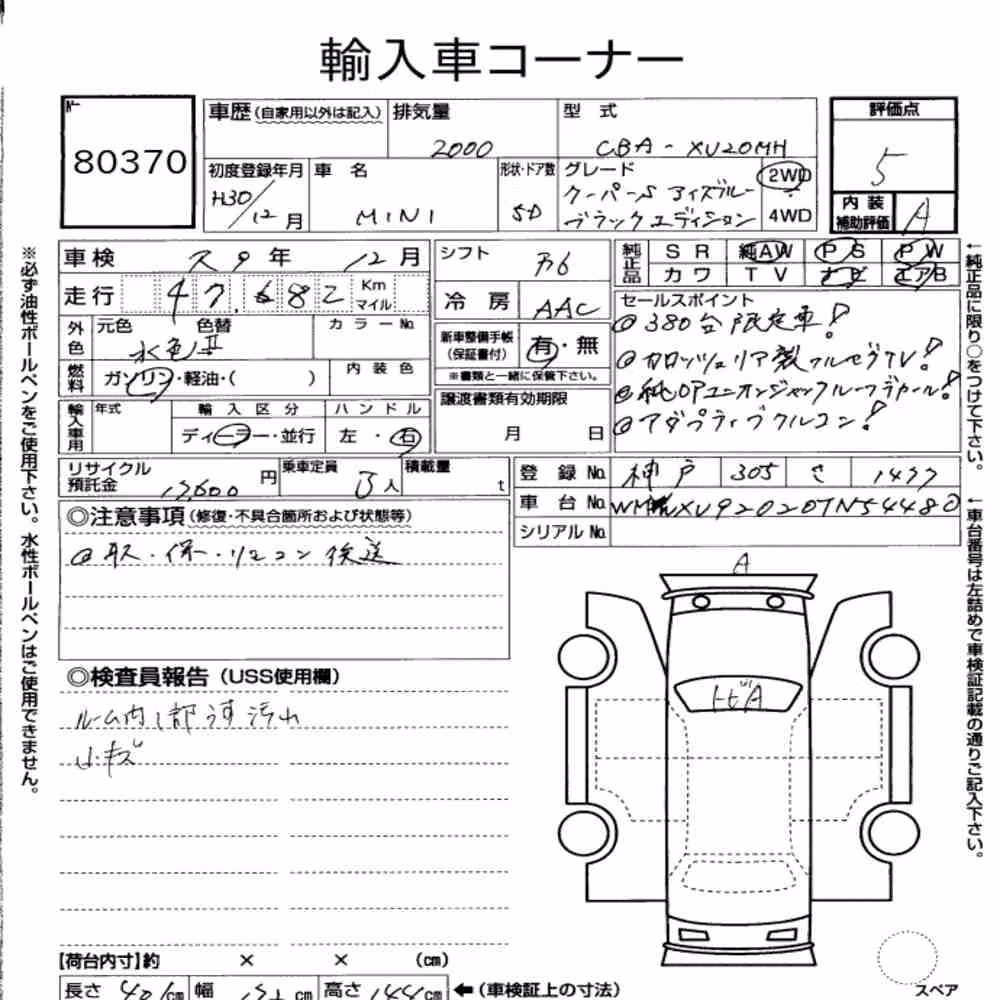 輸入車コーナー
80370
車歴(自家用以外は記入) 排気量 2000
型式 CBA-XU20MH
評価点 5
初度登録年月 H30/12月
車名 MINI
形状・ドア数 5D
グレード クーパーS アイズブルー ブラックエディション
2WD
4WD
内装補助評価 A
車検 R9年12月
シフト F6
純正品 SR 純AW PS PW
カワ TV ナビ エアB
走行 47,682 Km マイル
冷房 AAC
外色 元色 色替 カラーNo.
水色Ⅱ
新車整備手帳(保証書付) 有・無
※書類と一緒に保管下さい。
燃料 ガソリン・軽油・( )
内装色
譲渡書類有効期限
月 日
輸入車用 年式 輸入区分 ハンドル
ディーラー・並行 左・右
セールスポイント
@380台限定車!
@カロッツェリア製フルセグTV!
@純OPユニオンジャックルーフデカール!
@アダプティブクルコン!
リサイクル預託金 円
乗車定員 5人
積載量 t
登録No. 神戸 305 さ 1477
車台No.
シリアルNo.
◎注意事項(修復・不具合箇所および状態等)
@取・保・リモコン後送
◎検査員報告(USS使用欄)
ルーム内1部うす汚れ
小キズ
A
トビA
【荷台内寸】約 × × (cm)
長さ 401cm 幅 cm 高さ 144cm ←(車検証上の寸法)
スペア
※必ず油性ボールペンをご使用下さい。水性ボールペンはご使用できません。
←純正品に限り○をつけて下さい。
←車台番号は左詰めで車検証記載の通りご記入下さい。